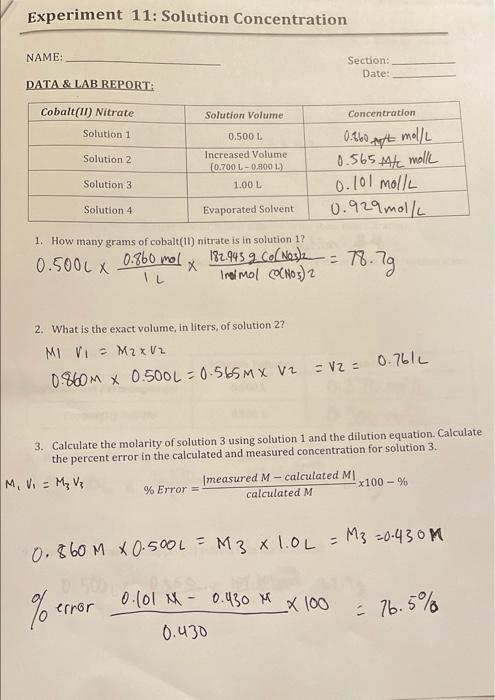 Experiment 11: Solution Concentration
NAME:
Section:
Date:
DATA & LAB REPORT:
Cobalt(II) Nitrate Solution Volume Concentration
Solution 1 0.500 L 0.860 mol/L
Solution 2 Increased Volume (0.700 L – 0.800 L) 0.565 mol/L
Solution 3 1.00 L 0.101 mol/L
Solution 4 Evaporated Solvent 0.929 mol/L
1. How many grams of cobalt(II) nitrate is in solution 1?
0.500L x 0.860 mol / 1 L x 182.943 g Co(NO3)2 / 1 mol Co(NO3)2 = 78.7g
2. What is the exact volume, in liters, of solution 2?
M1 V1 = M2 x V2
0.860M x 0.500L = 0.565M x V2 = V2 = 0.761L
3. Calculate the molarity of solution 3 using solution 1 and the dilution equation. Calculate
the percent error in the calculated and measured concentration for solution 3.
M1 V1 = M3 V3
% Error = |measured M – calculated M| / calculated M x100 – %
0.860 M x 0.500L = M3 x 1.0L = M3 = 0.430M
% error 0.101 M - 0.430 M / 0.430 x 100 = 76.5%